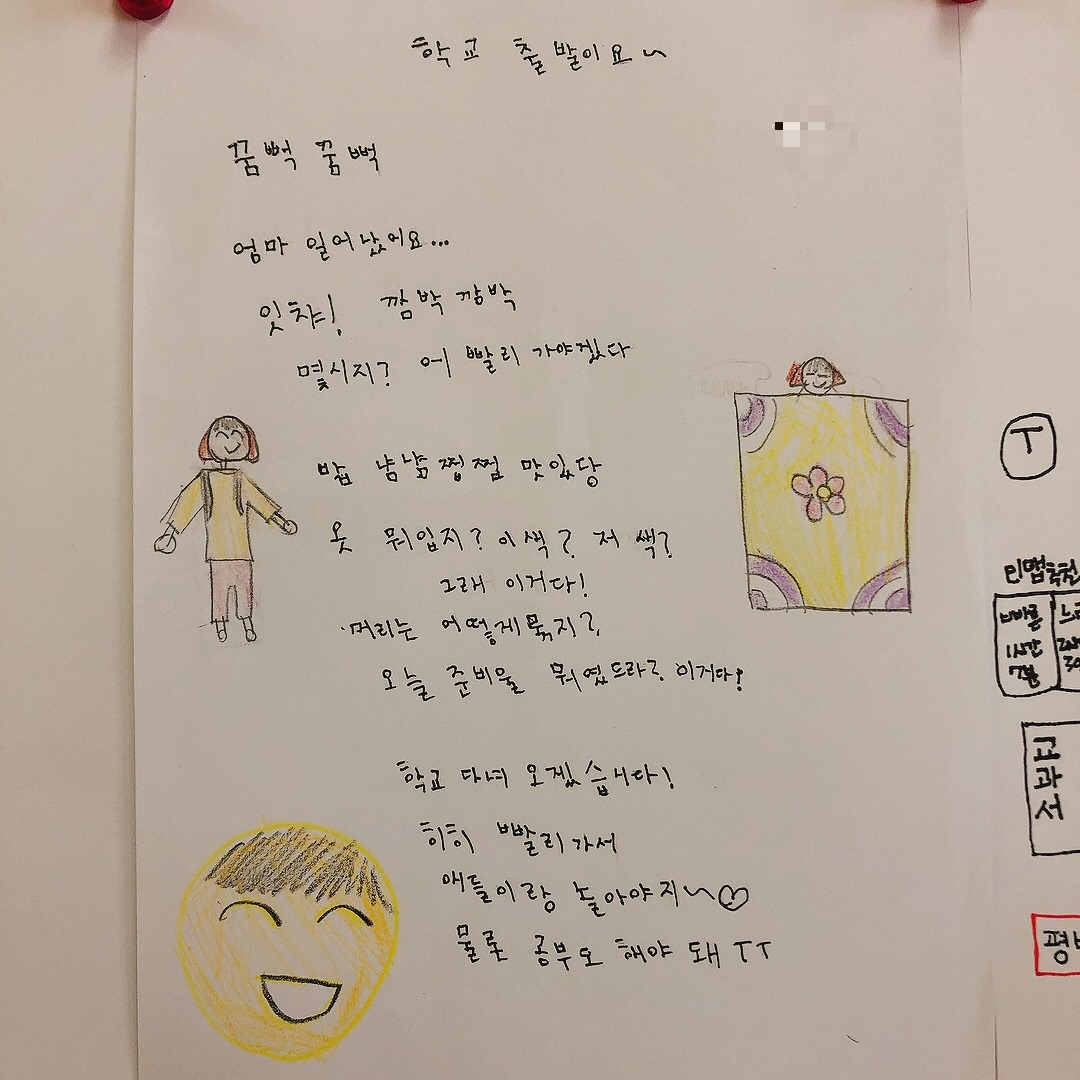 학교 출발이요~
꿈뻑 꿈뻑
엄마 일어났어요...
잇챠! 깜박 깜박
몇시지? 어 빨리 가야겠다
밥 냠냠쩝쩝 맛있당
옷 뭐입지? 이색? 저 색?
그래 이거다!
머리는 어떻게묶지?
오늘 준비울 뭐였드라? 이거다!
학교 다녀 오겠습니다!
히히 빨리가서
애들이랑 놀아야지~♡
물론 공부도 해야 돼 TT
T
빠른
1시간
7분
교과서